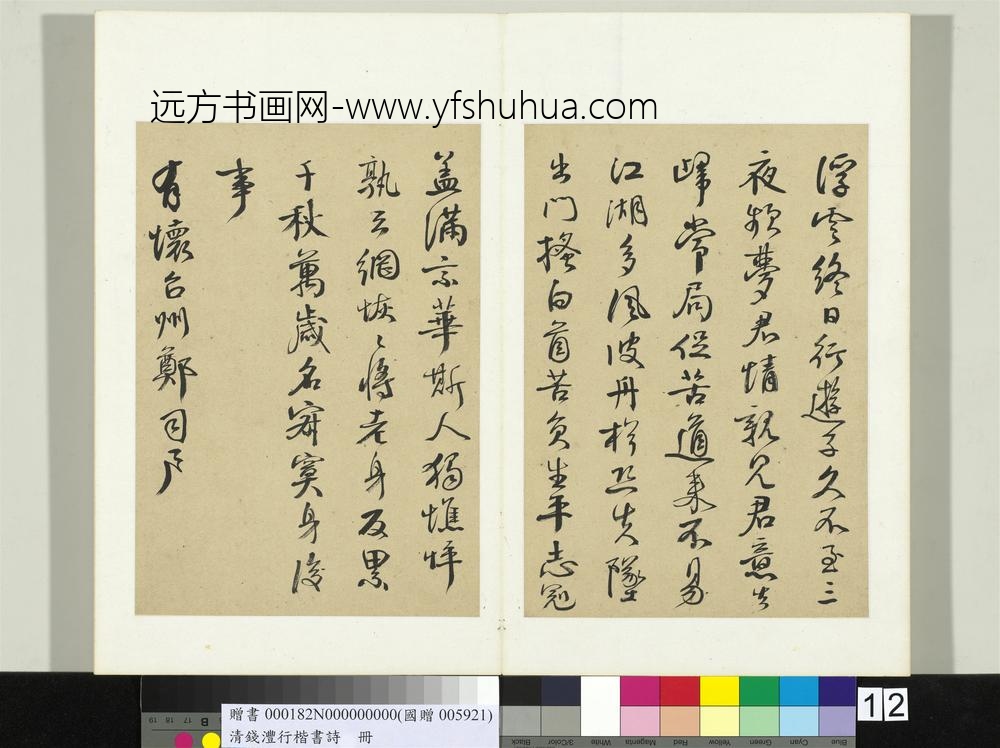 远方书画网-www.yfshuhua.com
浮雲終日行遊子久不至三
夜頻夢君情親見君意告
歸常局促苦道来不易
江湖多風波舟楫恐失墜
出門搔白首苦負生平志冠
盖滿京華斯人獨憔悴
孰云網恢〻將老身反累
千秋萬歲名寂寞身後
事
有懷台州鄭司戶
12
贈書 000182N000000000(國贈 005921)
清錢灃行楷書詩 冊
19 18 17 B
Black 3/Color White Magenta Red Yellow Green Cyan Blue